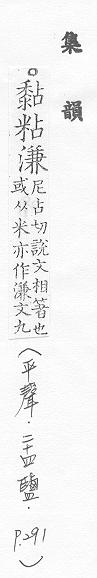 集韻
。黏粘溓尼占切說文相著也
或从米亦作溓文九
(平聲.二十四鹽.p.291)